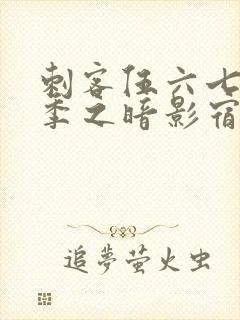 刺客伍六七
季之暗影宿
追夢萤火虫